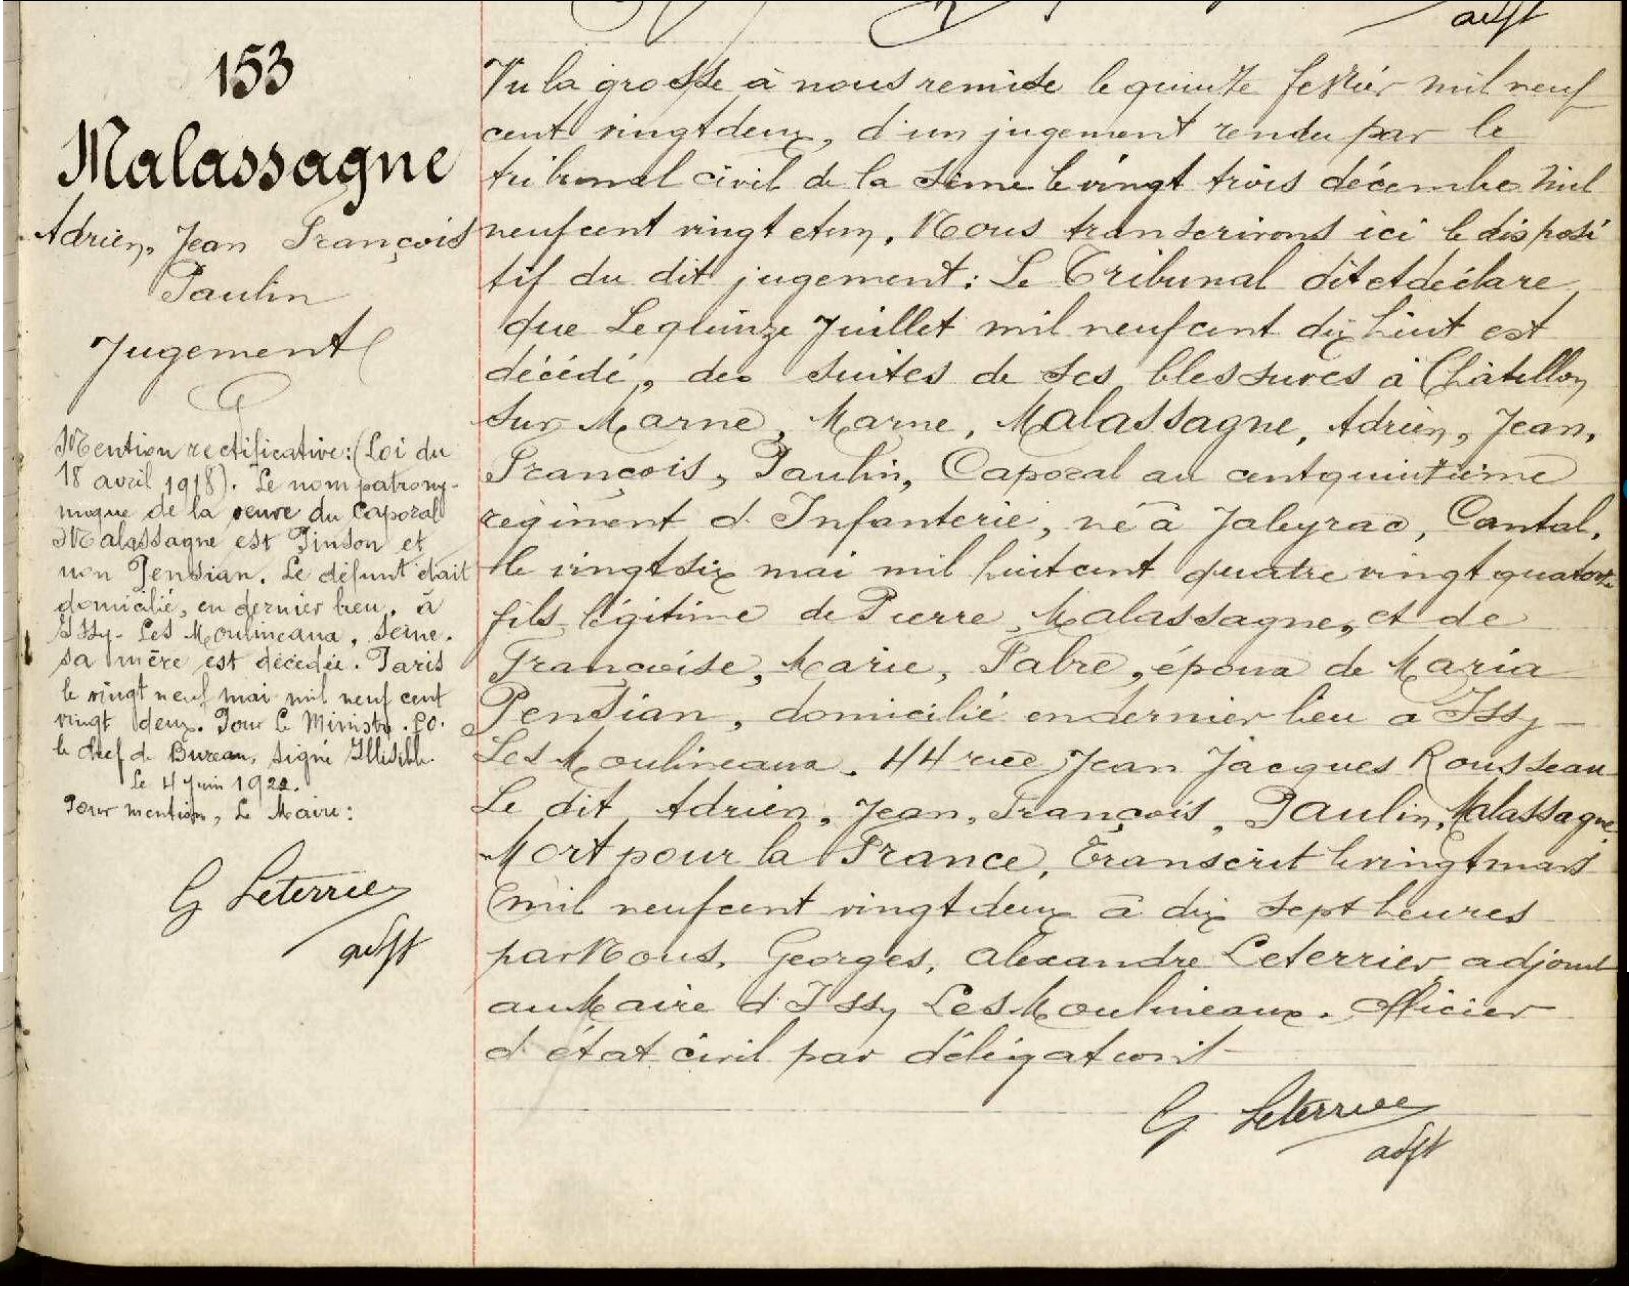 adjt
153
Malassagne
Adrien, Jean François
Paulin
Jugement
Mention rectificative: (Loi du
18 avril 1918). Le nom patrony-
mique de la veuve du Caporal
Malassagne est Pinson et
non Pensian. Le défunt était
domicilié, en dernier lieu, à
Issy-Les Moulineaux, Seine.
Sa mère est décédée. Paris
le vingt neuf mai mil neuf cent
vingt deux. Pour le Ministre. P.O.
le chef de Bureau, signé Illisible.
Le 4 Juin 1922.
Pour mention, Le Maire:
G Leterrier
adjt
Vu la grosse à nous remise le quinze février mil neuf
cent vingt deux, d'un jugement rendu par le
tribunal civil de la Seine le vingt trois décembre mil
neuf cent vingt et un. Nous transcrivons ici le disposi
tif du dit jugement: Le Tribunal dit et déclare
que Le quinze Juillet mil neuf cent dix huit est
décédé, des suites de ses blessures à Châtillon
sur Marne, Marne, Malassagne, Adrien, Jean,
François, Paulin, Caporal au cent quinzième
régiment d'Infanterie, né à Jaleyrac, Cantal,
le vingt six mai mil huit cent quatre vingt quatorze
fils légitime de Pierre, Malassagne, et de
Françoise, Marie, Fabre, époux de Maria
Pensian, domicilié en dernier lieu à Issy-
Les Moulineaux. 44 rue Jean Jacques Rousseau
Le dit Adrien, Jean, François, Paulin, Malassagne
Mort pour la France, Transcrit le vingt mars
mil neuf cent vingt deux à dix sept heures
par Nous, Georges, Alexandre Leterrier adjoint
au Maire d'Issy Les Moulineaux. Officier
d'état civil par délégation
G Leterrier
adjt